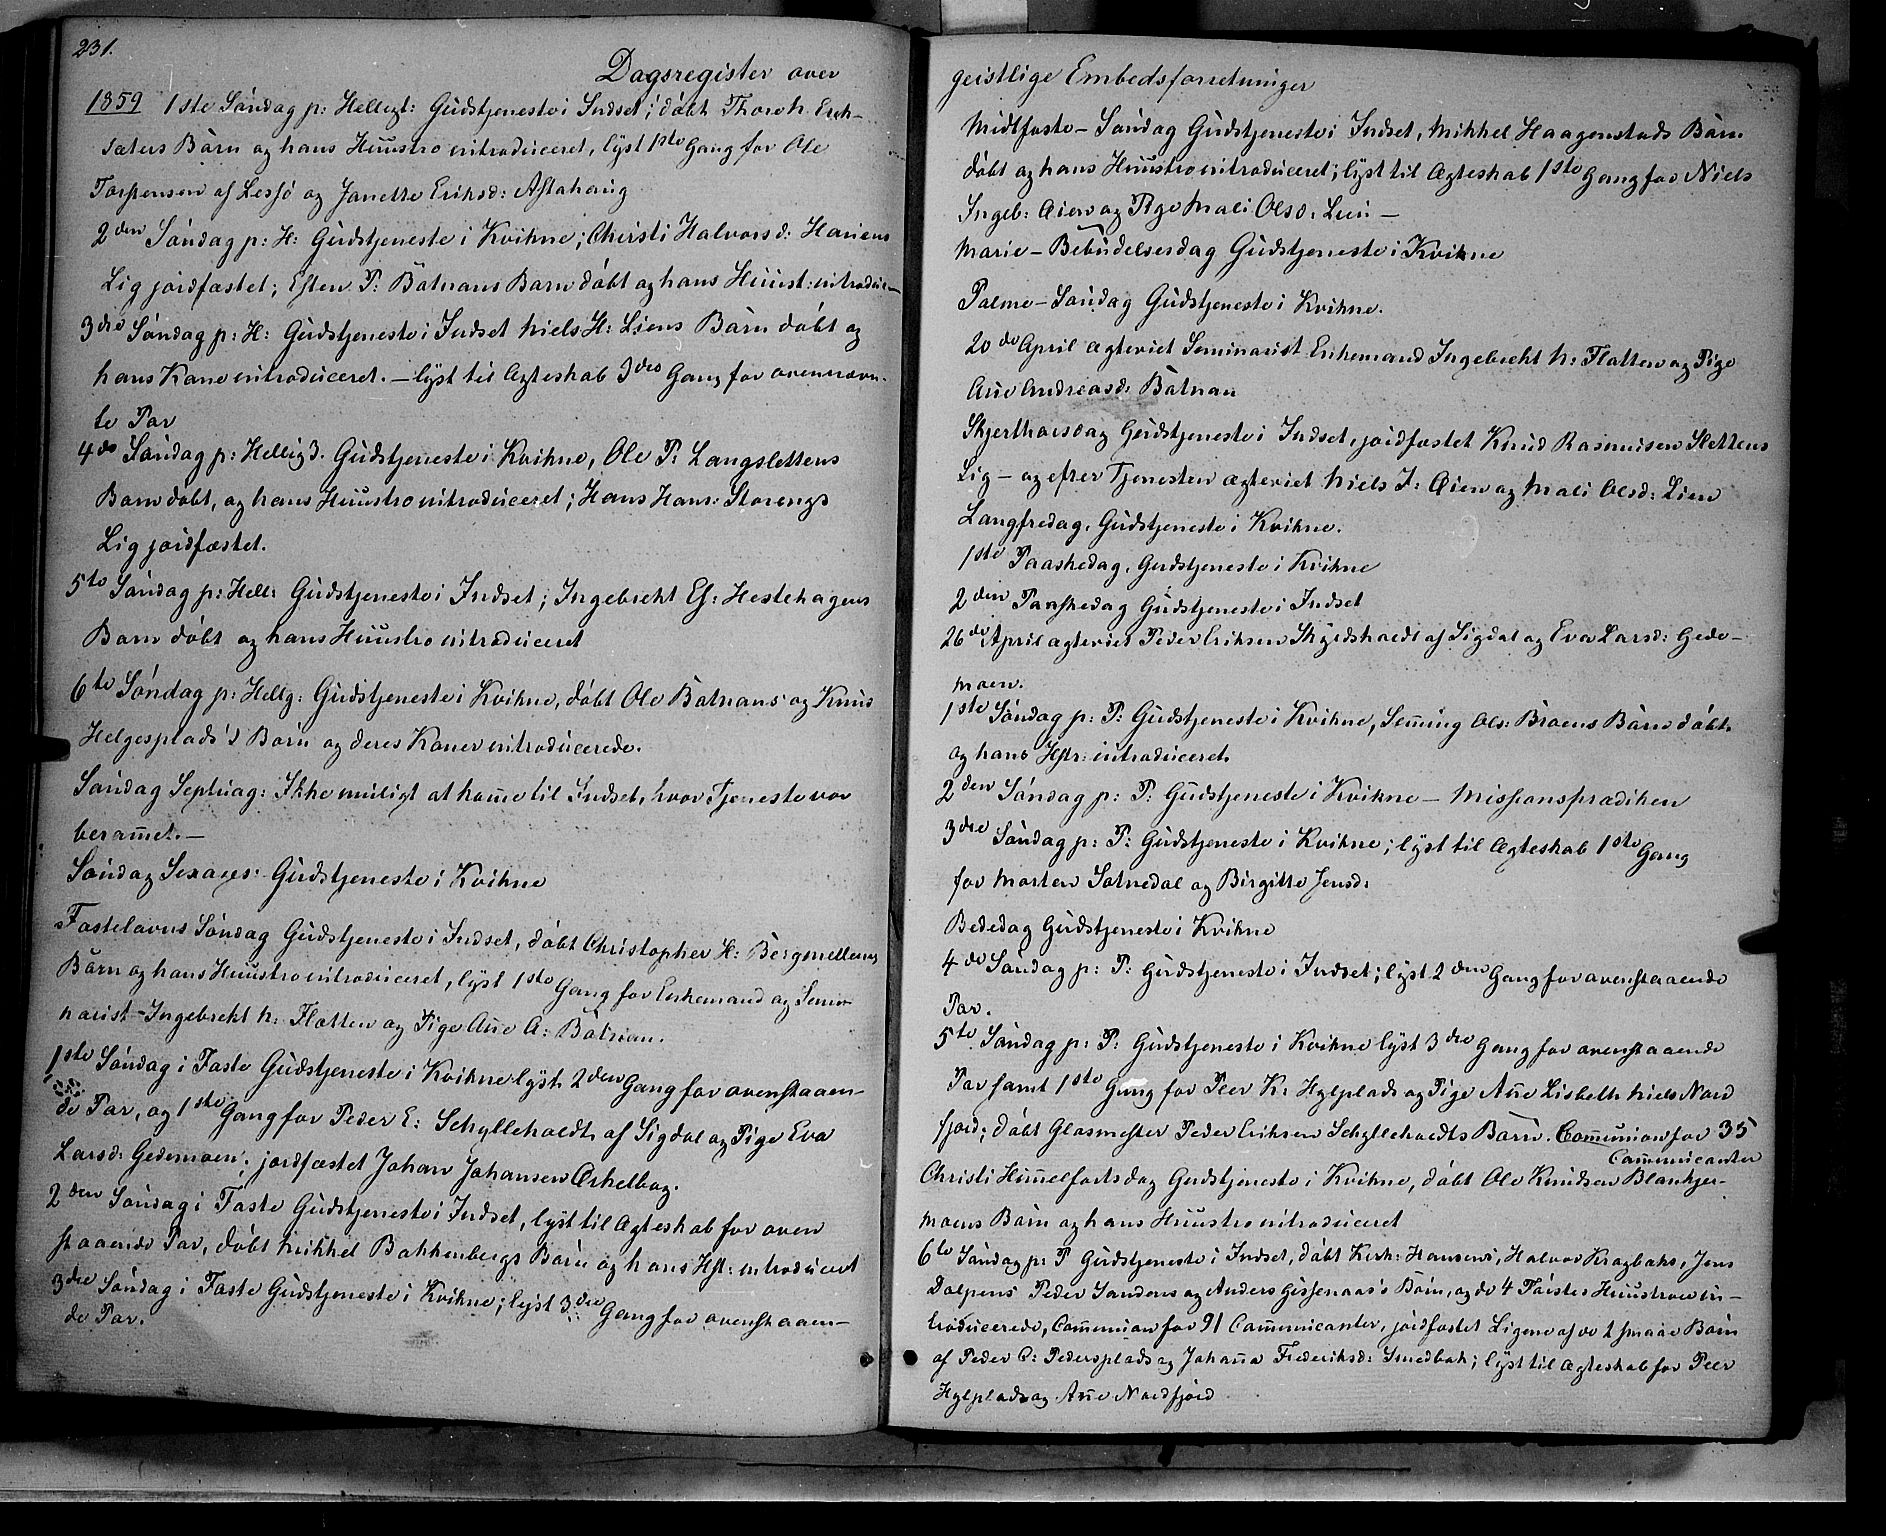 231.
Dagsregister over
1859 1ste Søndag p: Helligt: Gudstjeneste i Indset; døbt Thoreh. Enck-
sæters Barn og hans Huustro introduceret, lyst 1ste Gang for Ole
Torstensen af Lessø og Janette Eriksd: Aftahaug
2den Søndag p: H: Gudstjeneste i Kvikne; Christi Halvorsd: Hariens
Lig jordfæstet; Esten P: Batnans Barn døbt og hans Huust: introduc-
3die Søndag p: H: Gudstjeneste i Indset Niels H: Liens Barn døbt og
hans Kone introduceret. – lyst til Ægteskab 3die Gang for ovennævn-
te Par
4de Søndag p: Hellig3. Gudstjeneste i Kvikne, Ole P: Langslettens
Barn døbt, og hans Huustro introduceret; Hans Hans: Storengs
Lig jordfæstet.
5te Søndag p: Hell: Gudstjeneste i Indset; Ingebrekt Es: Hestehagens
Barn døbt og hans Huustro introduceret
6te Søndag p: Hellg: Gudstjeneste i Kvikne, døbt Ole Batnans og Knud
Helgesplads's Børn og deres Koner introducerede.
Søndag Septuag: Ikke muligt at komme til Indset, hvor Tjeneste var
berammet. –
Søndag Sexages: Gudstjeneste i Kvikne
Fastelavns Søndag Gudstjeneste i Indset, døbt Christopher H: Bergmellens
Barn og hans Huustro introduceret, lyst 1ste Gang for Enkemand og Semi-
narist Ingebrekt N: Flatten og Pige Ane A: Batnan.
1ste Søndag i Faste Gudstjeneste i Kvikne lyst 2den Gang for ovenstaaen-
de Par, og 1ste Gang for Peder E: Schylleholdt af Sigdal og Pige Eva
Larsd: Gedemoen; jordfæstet Johan Johansen Orkelbog.
2den Søndag i Faste Gudstjeneste i Indset, lyst til Ægteskab for oven
staaende Par, døbt Mikkel Bakkenbergs Barn og hans Hst: introduceret
3die Søndag i Faste Gudstjeneste i Kvikne; lyst 3die Gang for ovenstaaen-
de Par.
geistlige Embedsforretninger
Midtfaste-Søndag Gudstjeneste i Indset, Mikkel Haagenstads Barn
døbt og hans Huustro introduceret; lyst til Ægteskab 1ste Gang for Niels
Ingeb: Øien og Pige Mali Olsd: Lien –
Marie-Bebudelsesdag Gudstjeneste i Kvikne
Palme-Søndag Gudstjeneste i Kvikne.
20de April ægteviet Seminarist Enkemand Ingebrekt N: Flatten og Pige
Ane Andreasd: Batnan
Skjerthorsdag Gudstjeneste i Indset, jordfæstet Knud Rasmusen Slettens
Lig – og efter Tjenesten ægteviet Niels I: Øien og Mali Olsd: Lien
Langfredag, Gudstjeneste i Kvikne.
1ste Paaskedag, Gudstjeneste i Kvikne
2den Paaskedag Gudstjeneste i Indset
26de April ægteviet Peder Eriksen Skyldsholdt af Sigdal og Eva Larsd: Gede-
moen.
1ste Søndag p: P: Gudstjeneste i Kvikne, Semming Ols: Broens Barn døbt
og hans Hstr: introduceret.
2den Søndag p: P: Gudstjeneste i Kvikne – Missionsprædiken
3die Søndag p: P: Gudstjeneste i Kvikne; lyst til Ægteskab 1ste Gang
for Morten Sotnedal og Birgitte Jensd:
Bededag Gudstjeneste i Kvikne
4de Søndag p: P: Gudstjeneste i Indset; lyst 2den Gang for ovenstaaende
Par.
5te Søndag p: P: Gudstjeneste i Kvikne lyst 3die Gang for ovenstaaende
Par samt 1ste Gang for Peer K: Hylplads og Pige Ane Lisbeth Niels Nord
fjord; døbt Glasmester Peder Eriksen Schylleholdts Barn. Communion for 35
Communicanter
Christi Himmelfartsdag Gudstjeneste i Kvikne, døbt Ole Knudsen Blankjer-
moens Barn og hans Huustro introduceret
6te Søndag p: P Gudstjeneste i Indset, døbt Kirk: Hansens, Halvor Kragbaks, Jens
Dalpens Peder Sandens og Anders Gissenaas's Børn, og de 4 Førstes Huustroer in-
troducerede, Communion for 91 Communicanter, jordfæstet Ligene af de 2 smaae Børn
af Peder O: Pedersplads og Johanna Frederiksd: Smedbak; lyst til Ægteskab for Peer
Hylplads og Ane Nordfjord